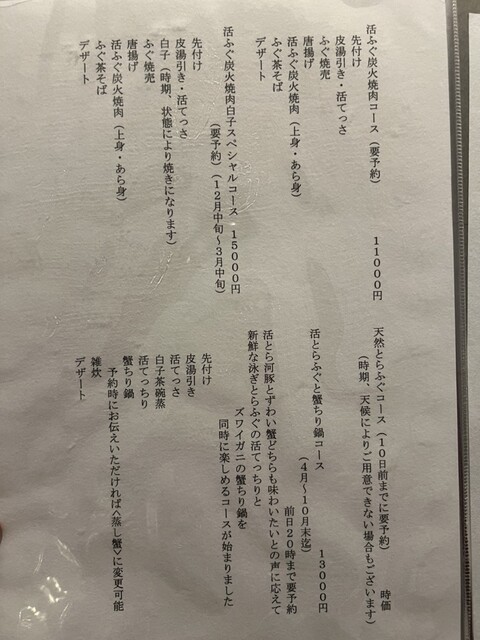 活ふぐ炭火焼肉コース（要予約）　１１０００円
先付け
皮湯引き・活てっさ
ふぐ焼売
唐揚げ
活ふぐ炭火焼肉（上身・あら身）
ふぐ茶そば
デザート
活ふぐ炭火焼肉白子スペシャルコース　１５０００円
（要予約）（１２月中旬～３月中旬）
先付け
皮湯引き・活てっさ
白子（時期、状態により焼きになります）
ふぐ焼売
唐揚げ
活ふぐ炭火焼肉（上身・あら身）
ふぐ茶そば
デザート
天然とらふぐコース（１０日前までに要予約）　時価
（時期、天候によりご用意できない場合もございます）
活とらふぐと蟹ちり鍋コース　１３０００円
（４月～１０月末迄）
前日２０時まで要予約
活とら河豚とずわい蟹どちらも味わいたいとの声に応えて
新鮮な泳ぎとらふぐの活てっちりと
ズワイガニの蟹ちり鍋を
同時に楽しめるコースが始まりました
先付け
皮湯引き
活てっさ
白子茶碗蒸
活てっちり
蟹ちり鍋
予約時にお伝えいただければ<蒸し蟹>に変更可能
雑炊
デザート